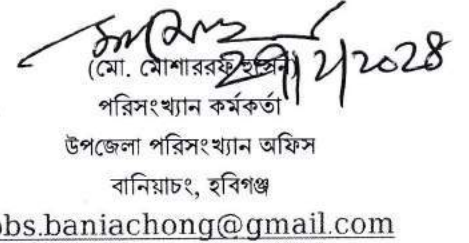 (মো. মোশাররফ হোসেন)
পরিসংখ্যান কর্মকর্তা
উপজেলা পরিসংখ্যান অফিস
বানিয়াচং, হবিগঞ্জ
obs.baniachong@gmail.com